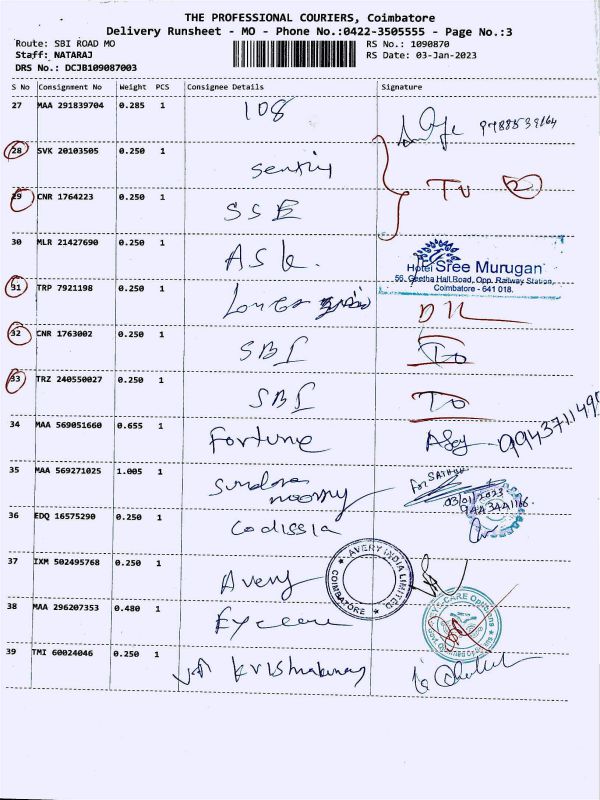 THE PROFESSIONAL COURIERS, Coimbatore
Delivery Runsheet - MO - Phone No.:0422-3505555 - Page No.:3
Route: SBI ROAD MO
RS No.: 1090870
Staff: NATARAJ
RS Date: 03-Jan-2023
DRS No.: DCJB109087003
S No Consignment No Weight PCS Consignee Details Signature
27 MAA 291839704 0.285 1 108
28 SVK 20103505 0.250 1
29 CNR 1764223 0.250 1 SSE
30 MLR 21427690 0.250 1 ASK.
Hotel Sree Murugan
56, Geetha Hall Road, Opp. Railway Station,
Coimbatore - 641 018.
31 TRP 7921198 0.250 1
32 CNR 1763002 0.250 1 SBI To
33 TRZ 240550027 0.250 1 SBI To
34 MAA 569051660 0.655 1 Fortune
35 MAA 569271025 1.005 1
03/01/2023
36 EDQ 16575290 0.250 1 Codissia
37 IXM 502495768 0.250 1 Avery
AVERY INDIA LIMITED
COIMBATORE
38 MAA 296207353 0.480 1 Eyecare
39 TMI 60024046 0.250 1